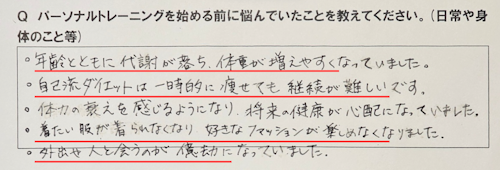 Q パーソナルトレーニングを始める前に悩んでいたことを教えてください。（日常や身
体のこと等）
○年齢とともに代謝が落ち、体重が増えやすくなっていました。
○自己流ダイエットは一時的に痩せても継続が難しいです。
○体力の衰えを感じるようになり、将来の健康が心配になっていました。
○着たい服が着られなくなり 好きなファッションが楽しめなくなりました.
○外出や人と会うのが億劫になっていました.